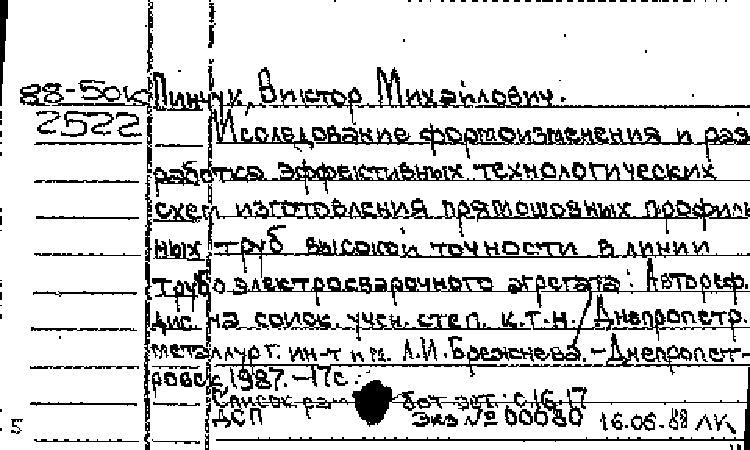 88-50к Пинчук, Виктор Михайлович.
2522 Исследование формоизменения и раз
работка эффективных технологических
схем изготовления прямошовных профиль
ных труб высокой точности в линии
трубоэлектросварочного агрегата: Автореф.
дис. на соиск. учен. степ. к.т.н. / Днепропетр.
металлург. ин-т им. Л.И. Брежнева. - Днепропет-
ровск 1987. - 17с.
Список ра- бот авт.: с.16-17
ДСП Экз № 00080 16.06.88 ЛК
5